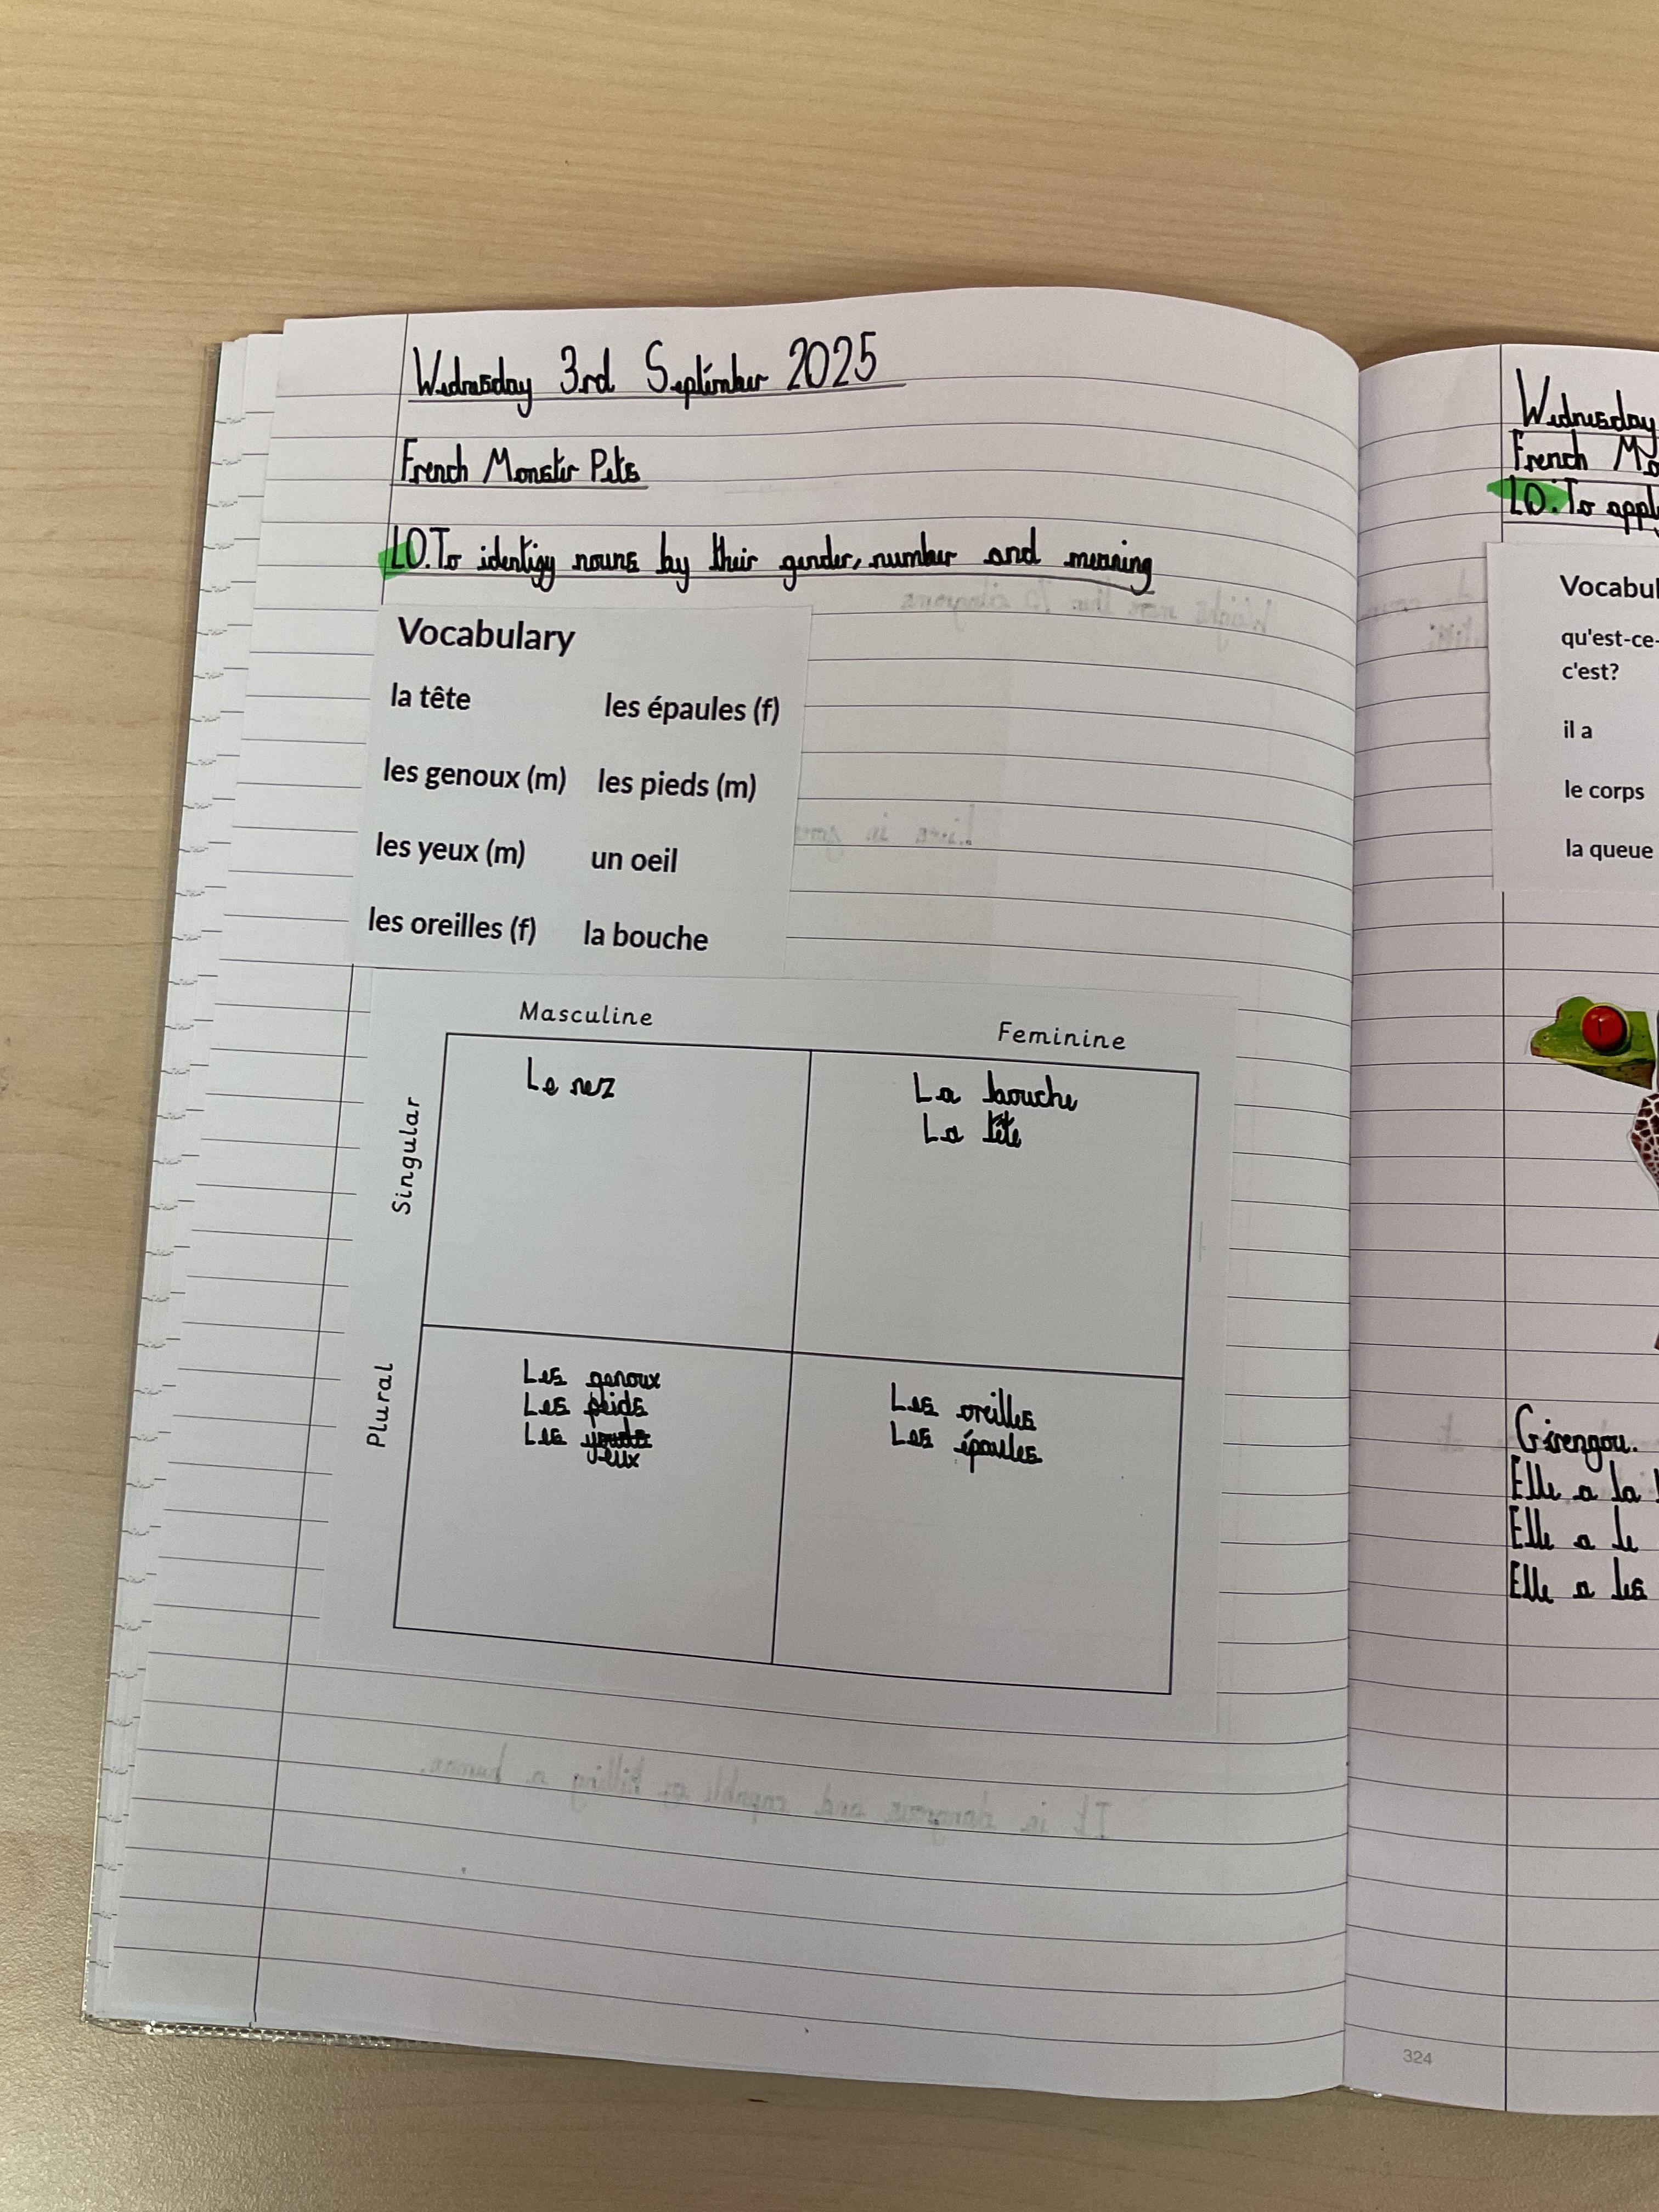 Wednesday 3rd September 2025
French Monster Pets
LO.To identify nouns by their gender, number and meaning
Vocabulary
la tête les épaules (f)
les genoux (m) les pieds (m)
les yeux (m) un oeil
les oreilles (f) la bouche
Masculine Feminine
Singular
Le nez
La bouche
La tête
Plural
Les genoux
Les peids
Les
yeux
Les oreilles
Les épaules
Wednesday
French Mo
LO: To appl
Vocabul
qu'est-ce-
c'est?
il a
le corps
la queue
Girengou.
Elle a la
Elle a le
Elle a les
324